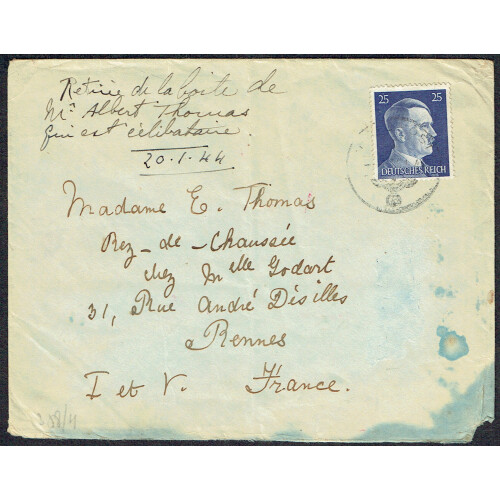 Retirée de la boite de
Mr Albert Thomas
qui est célibataire.
20-1-44
25 25
DEUTSCHES REICH
Madame E. Thomas
Rez-de-Chaussée
chez Mlle Godart
31, Rue André Désilles
Rennes
I et V. France.